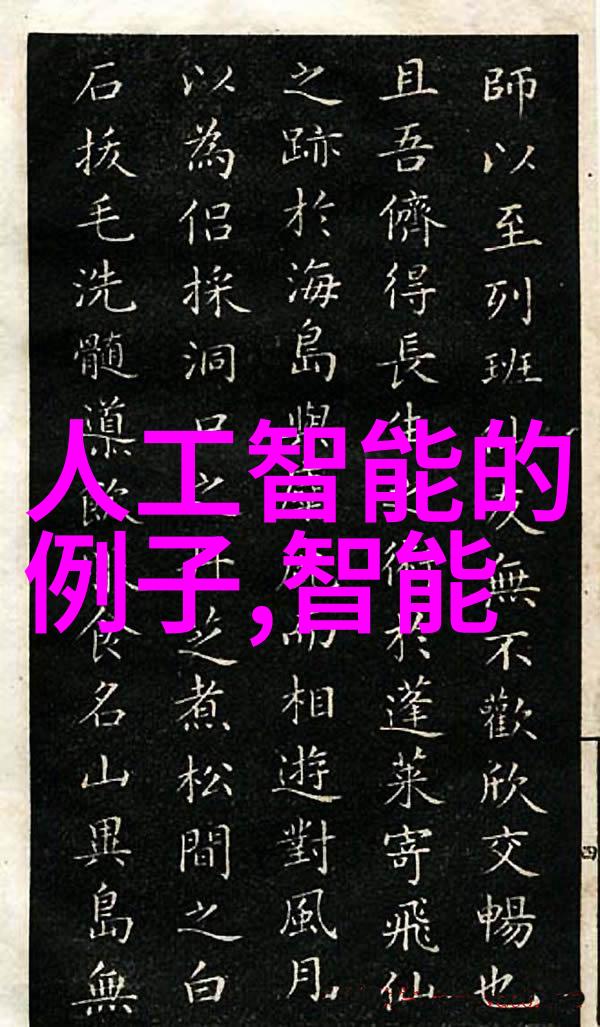 師以至列班仙友無不歡欣交暢也
且吾儕得長生之術於蓬萊寄飛仙
之跡於海島與而相遊對風月
以為侶採洞口之芝煮松間之白
石拔毛洗髓飲食名山異島無
人工智能的
例子,智能
四